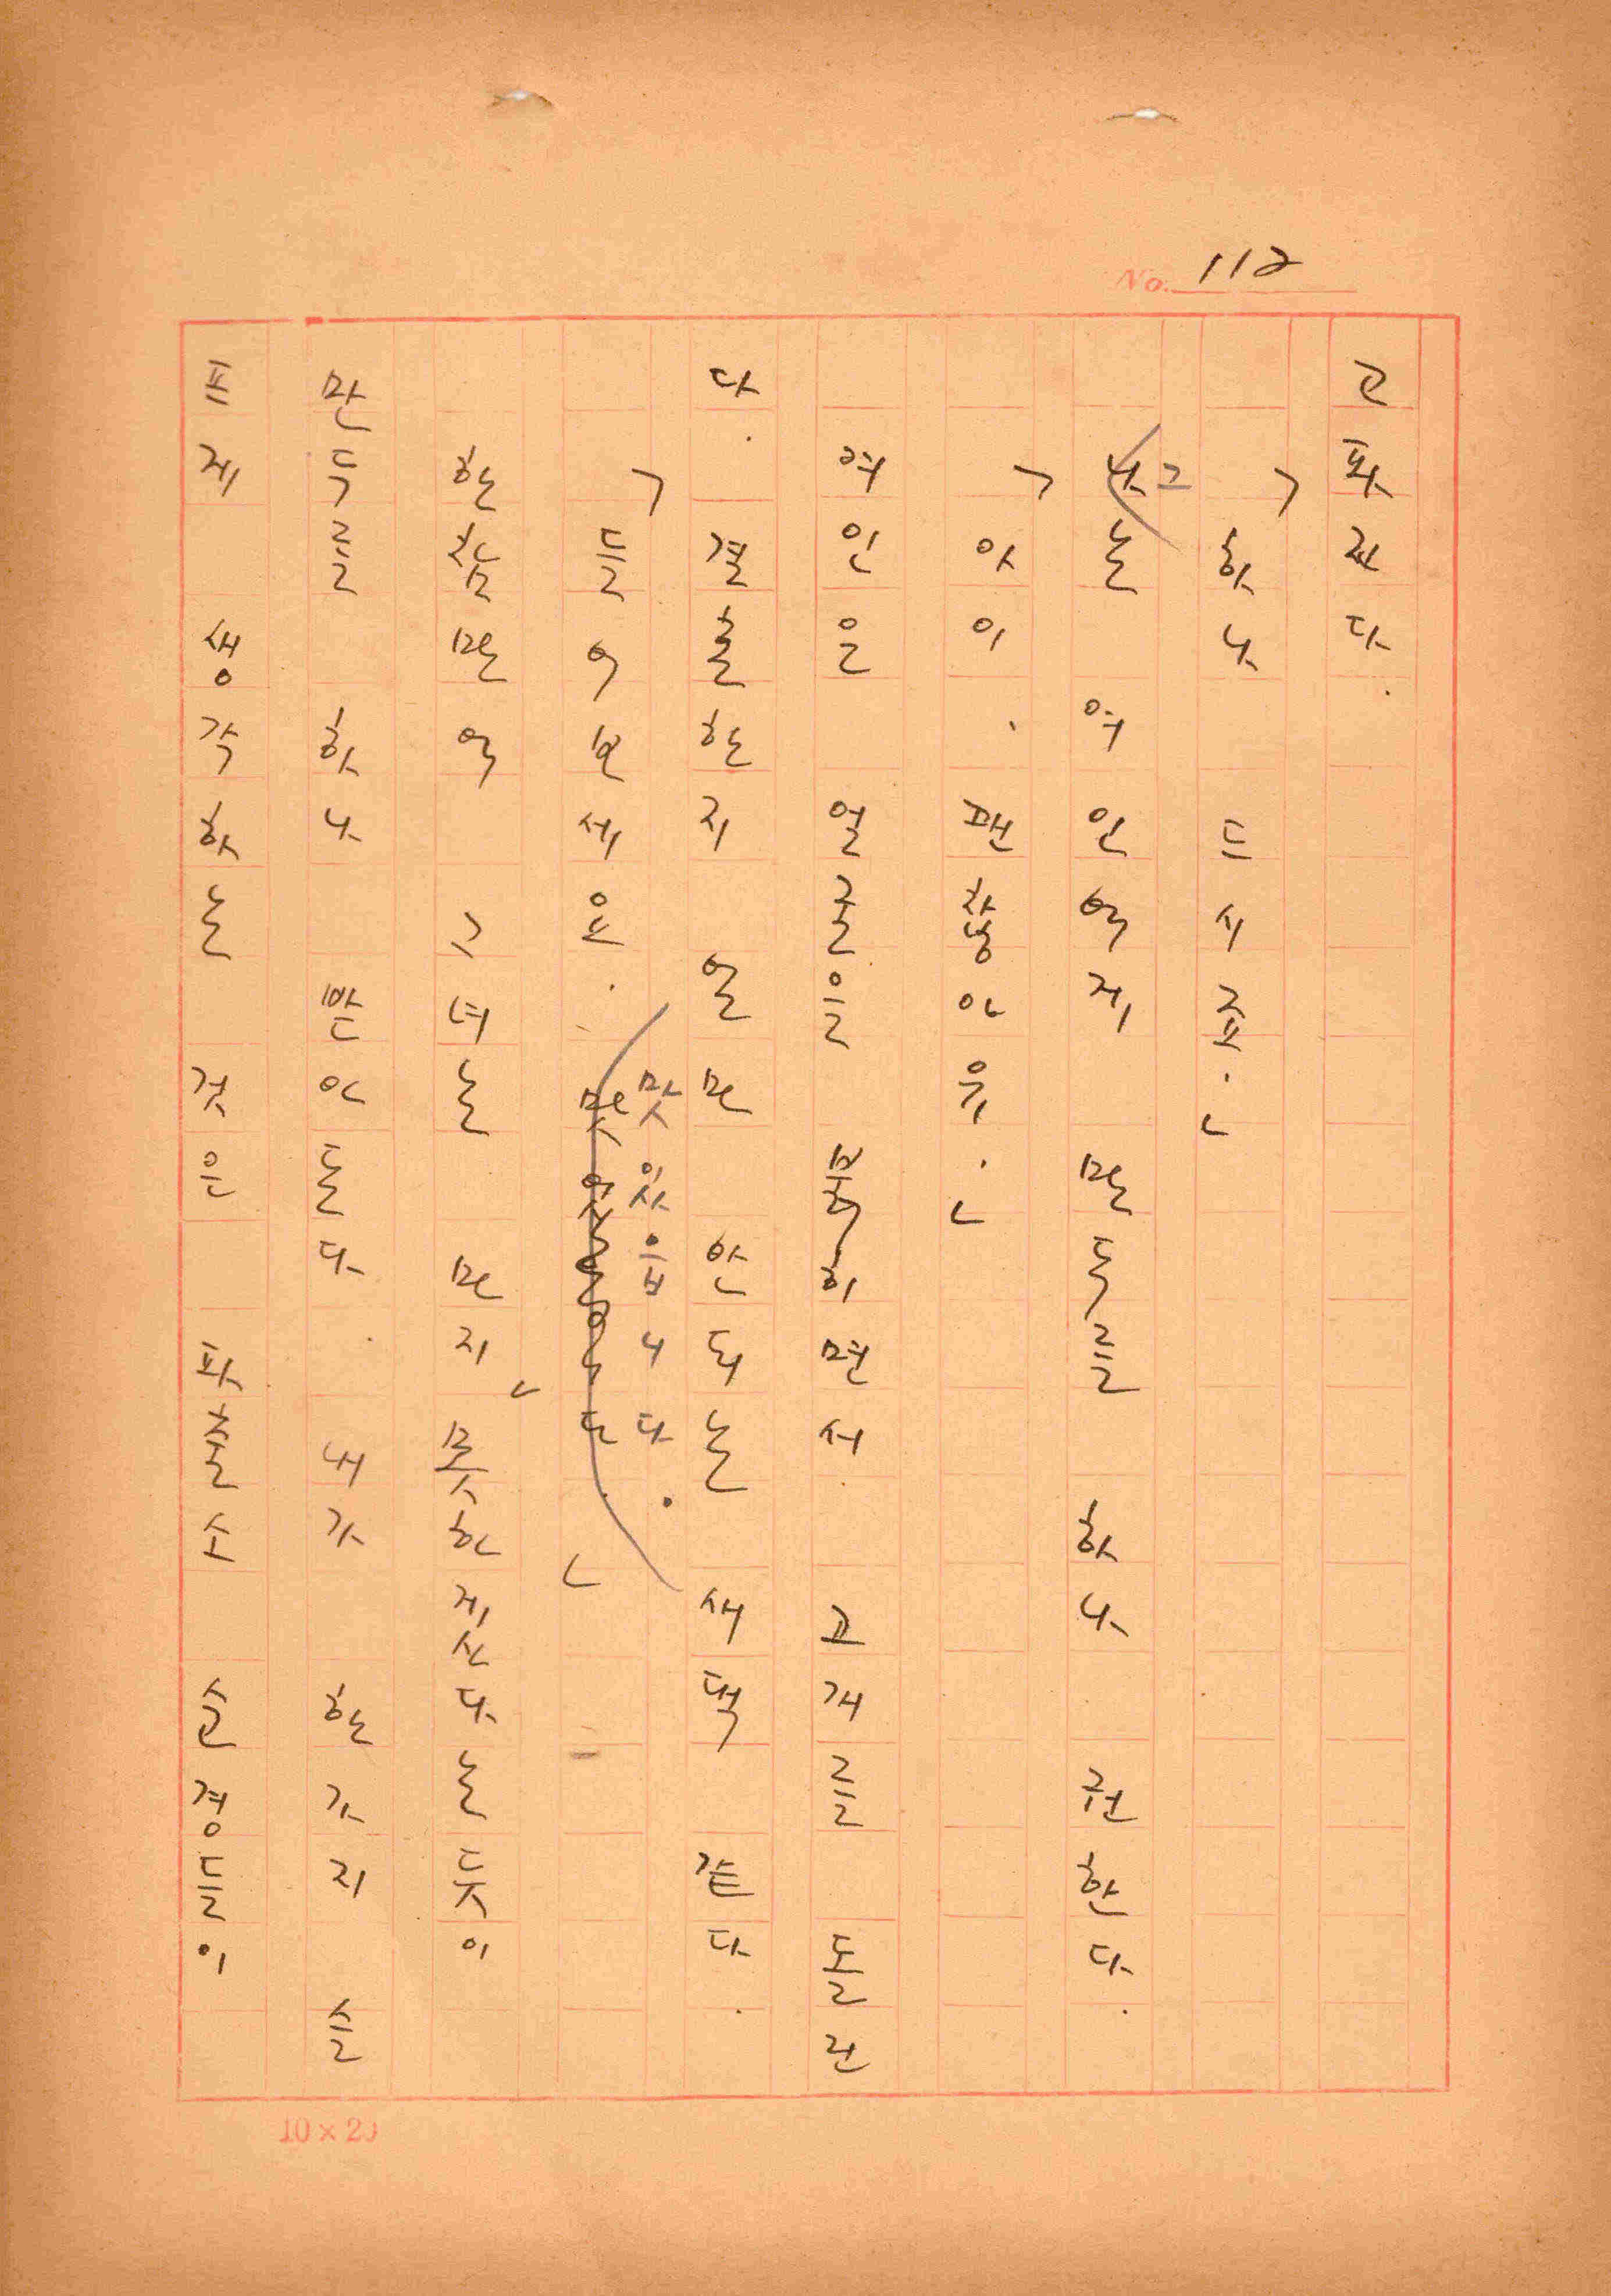 고파진다.
「하나 드시죠.」
그는 여인에게 만두를 하나 권한다.
「아이, 괜찮아유.」
여인은 얼굴을 붉히면서 고개를 돌린
다. 결혼한지 얼마 안되는 새댁 같다.
「들어보세요. 맛있읍니다.」
한참만에 그녀는 마지 못하겠다는 듯이
만두를 하나 받아 든다. 내가 한가지 슬
프게 생각하는 것은 파출소 순경들이
No. 112
10×20